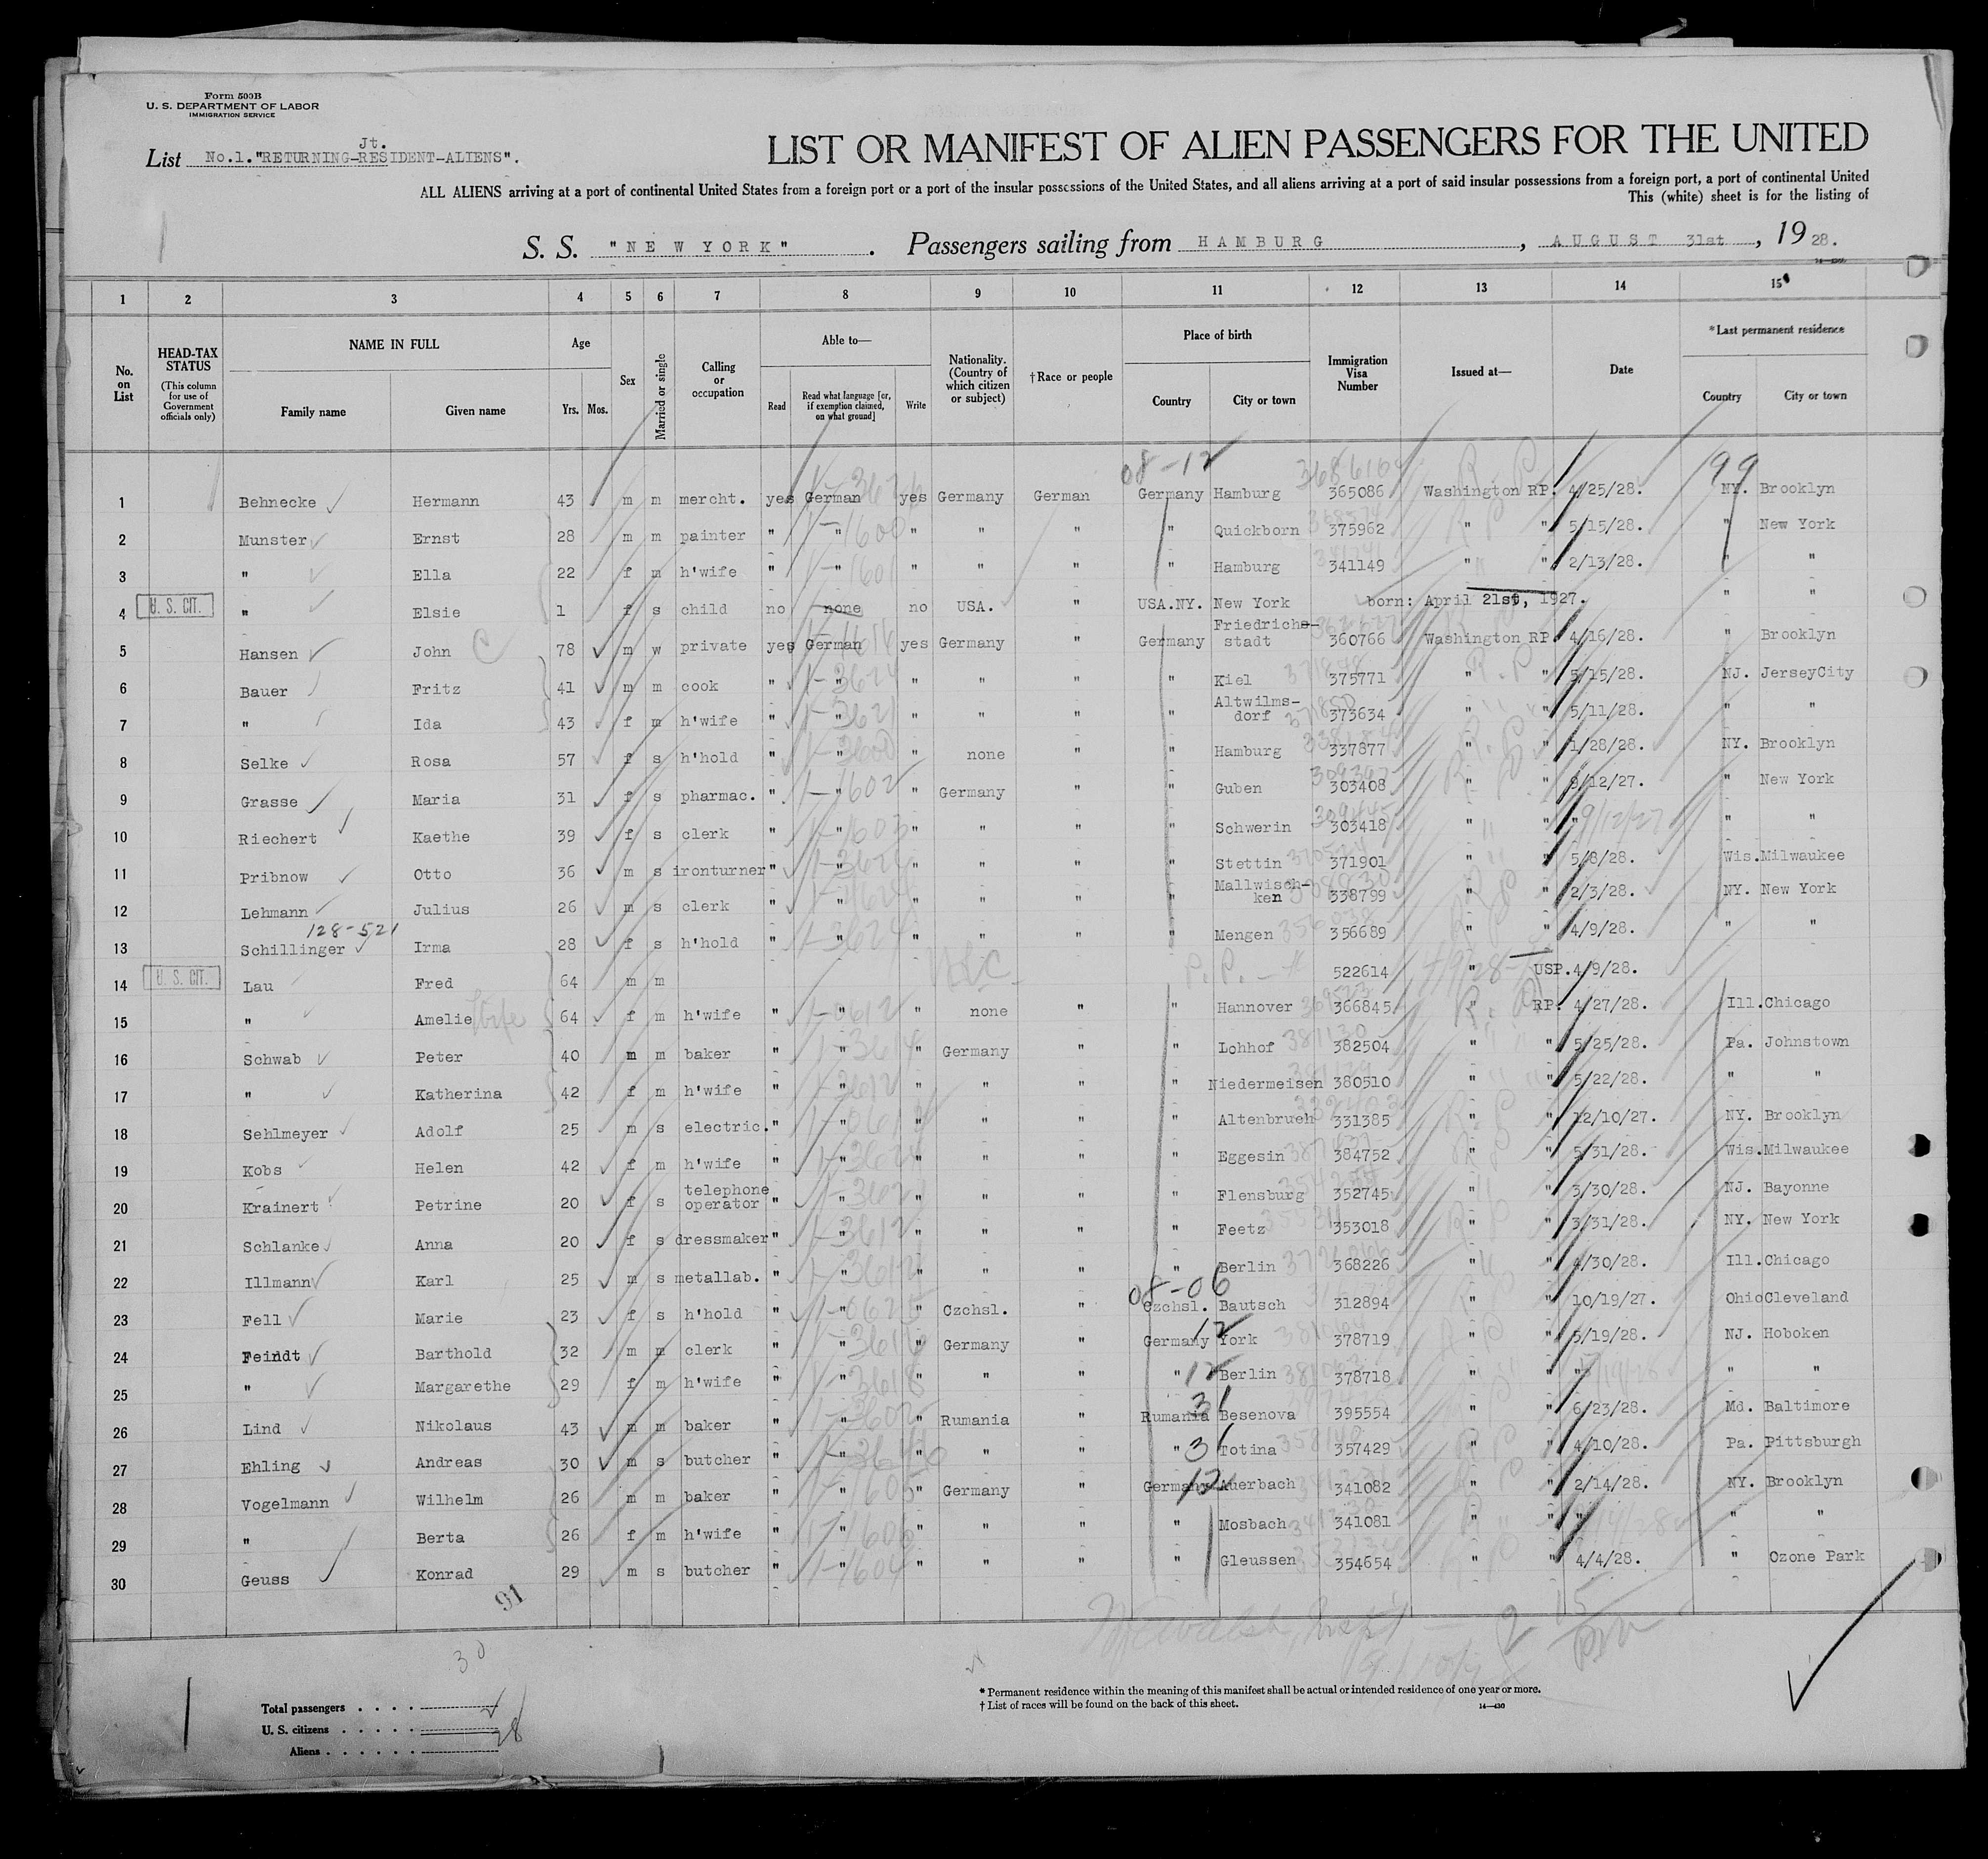 Form 500B
U. S. DEPARTMENT OF LABOR
IMMIGRATION SERVICE
Jt.
List No.1."RETURNING-RESIDENT-ALIENS".
LIST OR MANIFEST OF ALIEN PASSENGERS FOR THE UNITED
ALL ALIENS arriving at a port of continental United States from a foreign port or a port of the insular possessions of the United States, and all aliens arriving at a port of said insular possessions from a foreign port, a port of continental United
This (white) sheet is for the listing of
S. S. "NEW YORK". Passengers sailing from HAMBURG, AUGUST 31st, 1928.
1 2 3 4 5 6 7 8 9 10 11 12 13 14 15
No. on List
HEAD-TAX STATUS (This column for use of Government officials only)
NAME IN FULL
Family name Given name
Age
Yrs. Mos.
Sex
Married or single
Calling or occupation
Able to—
Read Read what language [or, if exemption claimed, on what ground] Write
Nationality. (Country of which citizen or subject)
†Race or people
Place of birth
Country City or town
Immigration Visa Number
Issued at—
Date
*Last permanent residence
Country City or town
08-12 199
1 Behnecke Hermann 43 m m mercht. yes German yes Germany German Germany Hamburg 365086 Washington RP. 4/25/28. NY. Brooklyn
2 Munster Ernst 28 m m painter " " " " " " Quickborn 375962 " " 5/15/28. " New York
3 " Ella 22 f m h'wife " " " " " " Hamburg 341149 " " 2/13/28. " "
4 U. S. CIT. " Elsie 1 f s child no none no USA. " USA.NY. New York born: April 21st, 1927. " "
5 Hansen John C 78 m w private yes German yes Germany " Germany Friedrichs-stadt 360766 Washington RP. 4/16/28. " Brooklyn
6 Bauer Fritz 41 m m cook " " " " " " Kiel 375771 " " 5/15/28. NJ. JerseyCity
7 " Ida 43 f m h'wife " " " " " " Altwilms-dorf 373634 " " 5/11/28. " "
8 Selke Rosa 57 f s h'hold " " " none " " Hamburg 337877 " " 1/28/28. NY. Brooklyn
9 Grasse Maria 31 f s pharmac. " " " Germany " " Guben 303408 " " 9/12/27. " New York
10 Riechert Kaethe 39 f s clerk " " " " " " Schwerin 303418 " " " 9/12/27 " "
11 Pribnow Otto 36 m s ironturner " " " " " " Stettin 371901 " " 5/8/28. Wis. Milwaukee
12 Lehmann Julius 26 m s clerk " " " " " " Mallwisch-ken 338799 " " 2/3/28. NY. New York
128-521
13 Schillinger Irma 28 f s h'hold " " " " " " Mengen 356689 " " 4/9/28. " "
14 U. S. CIT. Lau Fred 64 m m 522614 " USP. 4/9/28.
15 " Amelie wife 64 f m h'wife " " " none " " Hannover 366845 " RP. 4/27/28. Ill. Chicago
16 Schwab Peter 40 m m baker " " " Germany " " Lohhof 382504 " " 5/25/28. Pa. Johnstown
17 " Katherina 42 f m h'wife " " " " " " Niedermeisen 380510 " " 5/22/28. " "
18 Sehlmeyer Adolf 25 m s electric. " " " " " " Altenbruch 331385 " " 12/10/27. NY. Brooklyn
19 Kobs Helen 42 f m h'wife " " " " " " Eggesin 384752 " " 5/31/28. Wis. Milwaukee
20 Krainert Petrine 20 f s telephone operator " " " " " " Flensburg 352745 " " 3/30/28. NJ. Bayonne
21 Schlanke Anna 20 f s dressmaker " " " " " " Feetz 353018 " " 3/31/28. NY. New York
22 Illmann Karl 25 m s metallab. " " " " " " Berlin 368226 " " 4/30/28. Ill. Chicago
08-06
23 Fell Marie 23 f s h'hold " " " Czchsl. " Czchsl. Bautsch 312894 " " 10/19/27. Ohio Cleveland
24 Feindt Barthold 32 m m clerk " " " Germany " Germany 12 York 378719 " " 5/19/28. NJ. Hoboken
25 " Margarethe 29 f m h'wife " " " " " " 12 Berlin 378718 " " " " "
26 Lind Nikolaus 43 m m baker " " " Rumania " Rumania 31 Besenova 395554 " " 6/23/28. Md. Baltimore
27 Ehling Andreas 30 m s butcher " " " " " " 31 Totina 357429 " " 4/10/28. Pa. Pittsburgh
28 Vogelmann Wilhelm 26 m m baker " " " Germany " Germany 12 Auerbach 341082 " " 2/14/28. NY. Brooklyn
29 " Berta 26 f m h'wife " " " " " " Mosbach 341081 " " " " "
30 Geuss Konrad 29 m s butcher " " " " " " Gleussen 354654 " " 4/4/28. " Ozone Park
91
30
Total passengers
U. S. citizens
Aliens 28
* Permanent residence within the meaning of this manifest shall be actual or intended residence of one year or more.
† List of races will be found on the back of this sheet.
14—430